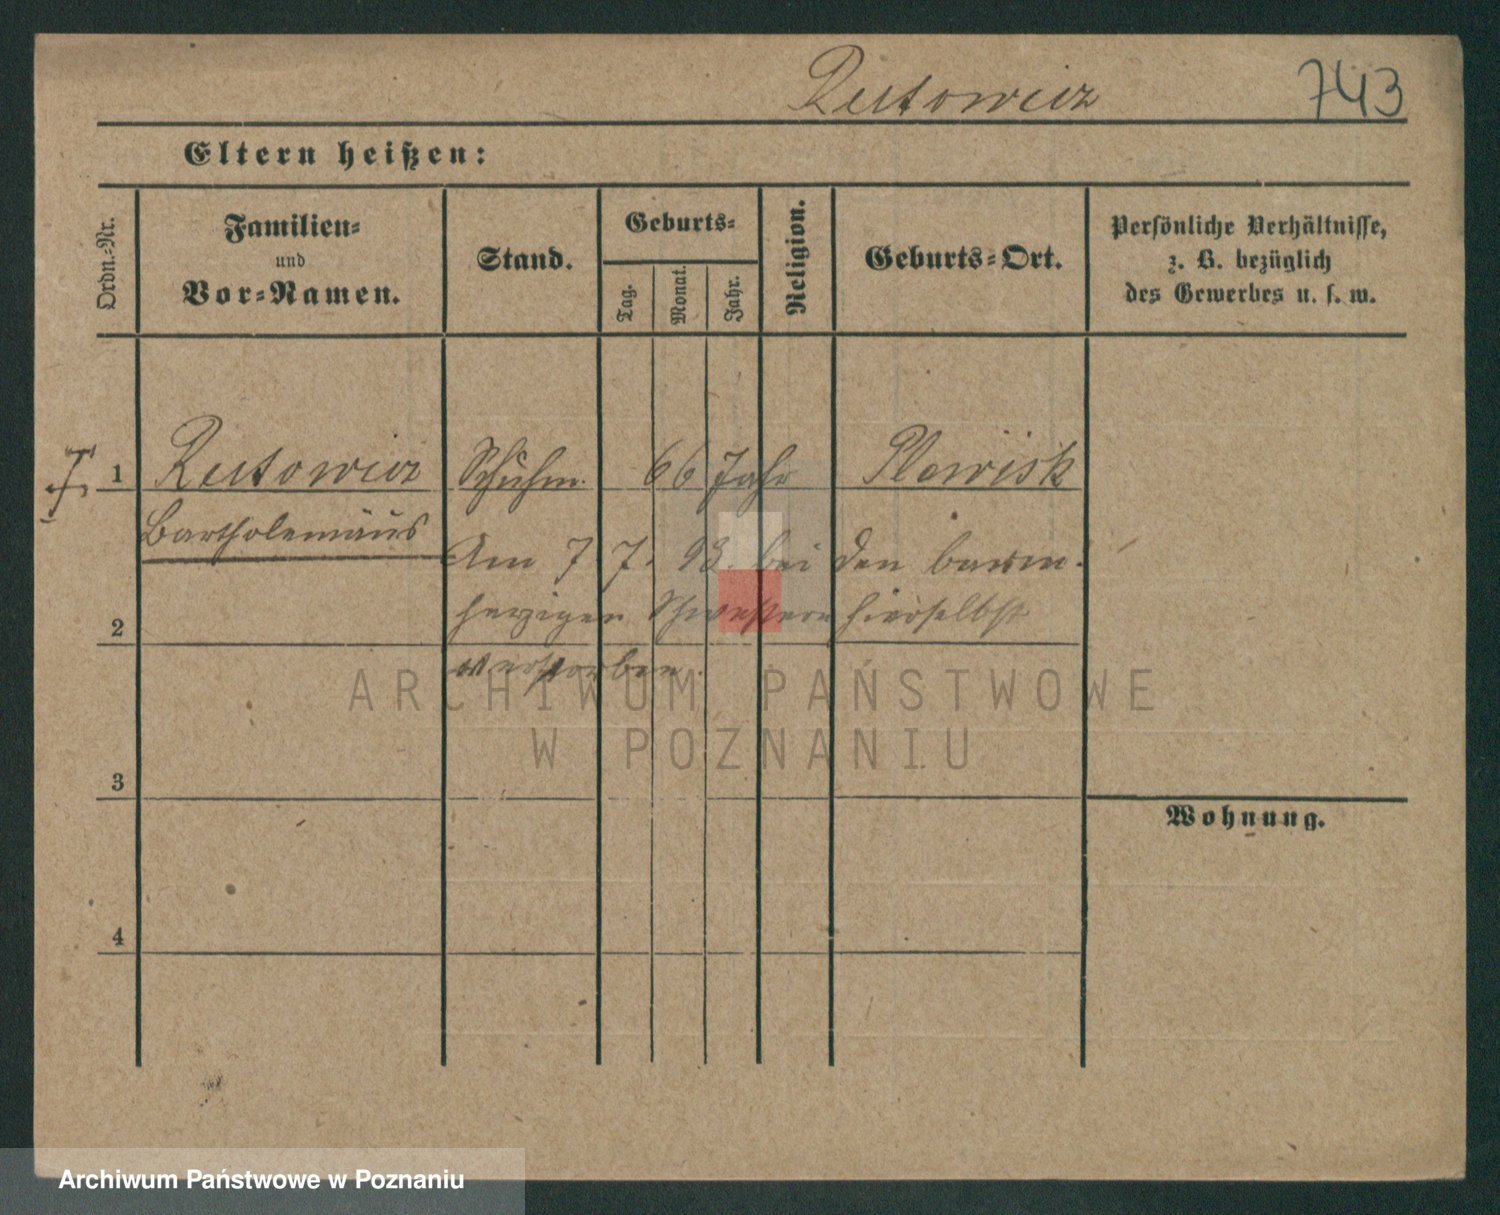 Rutowicz 743
Eltern heißen:
Ordn.-Nr.
Familien-
und
Vor-Namen.
Stand.
Geburts-
Tag.
Monat.
Jahr.
Religion.
Geburts-Ort.
Persönliche Verhältnisse,
z. B. bezüglich
des Gewerbes u. s. w.
1 Rutowicz Schuhm. 66 Jahr Plewisk
Bartholemäus
Am 7 7. 93. bei den barm-
herzigen Schwestern hierselbst
2
verstorben.
3
Wohnung.
4
ARCHIWUM PAŃSTWOWE
W POZNANIU
Archiwum Państwowe w Poznaniu